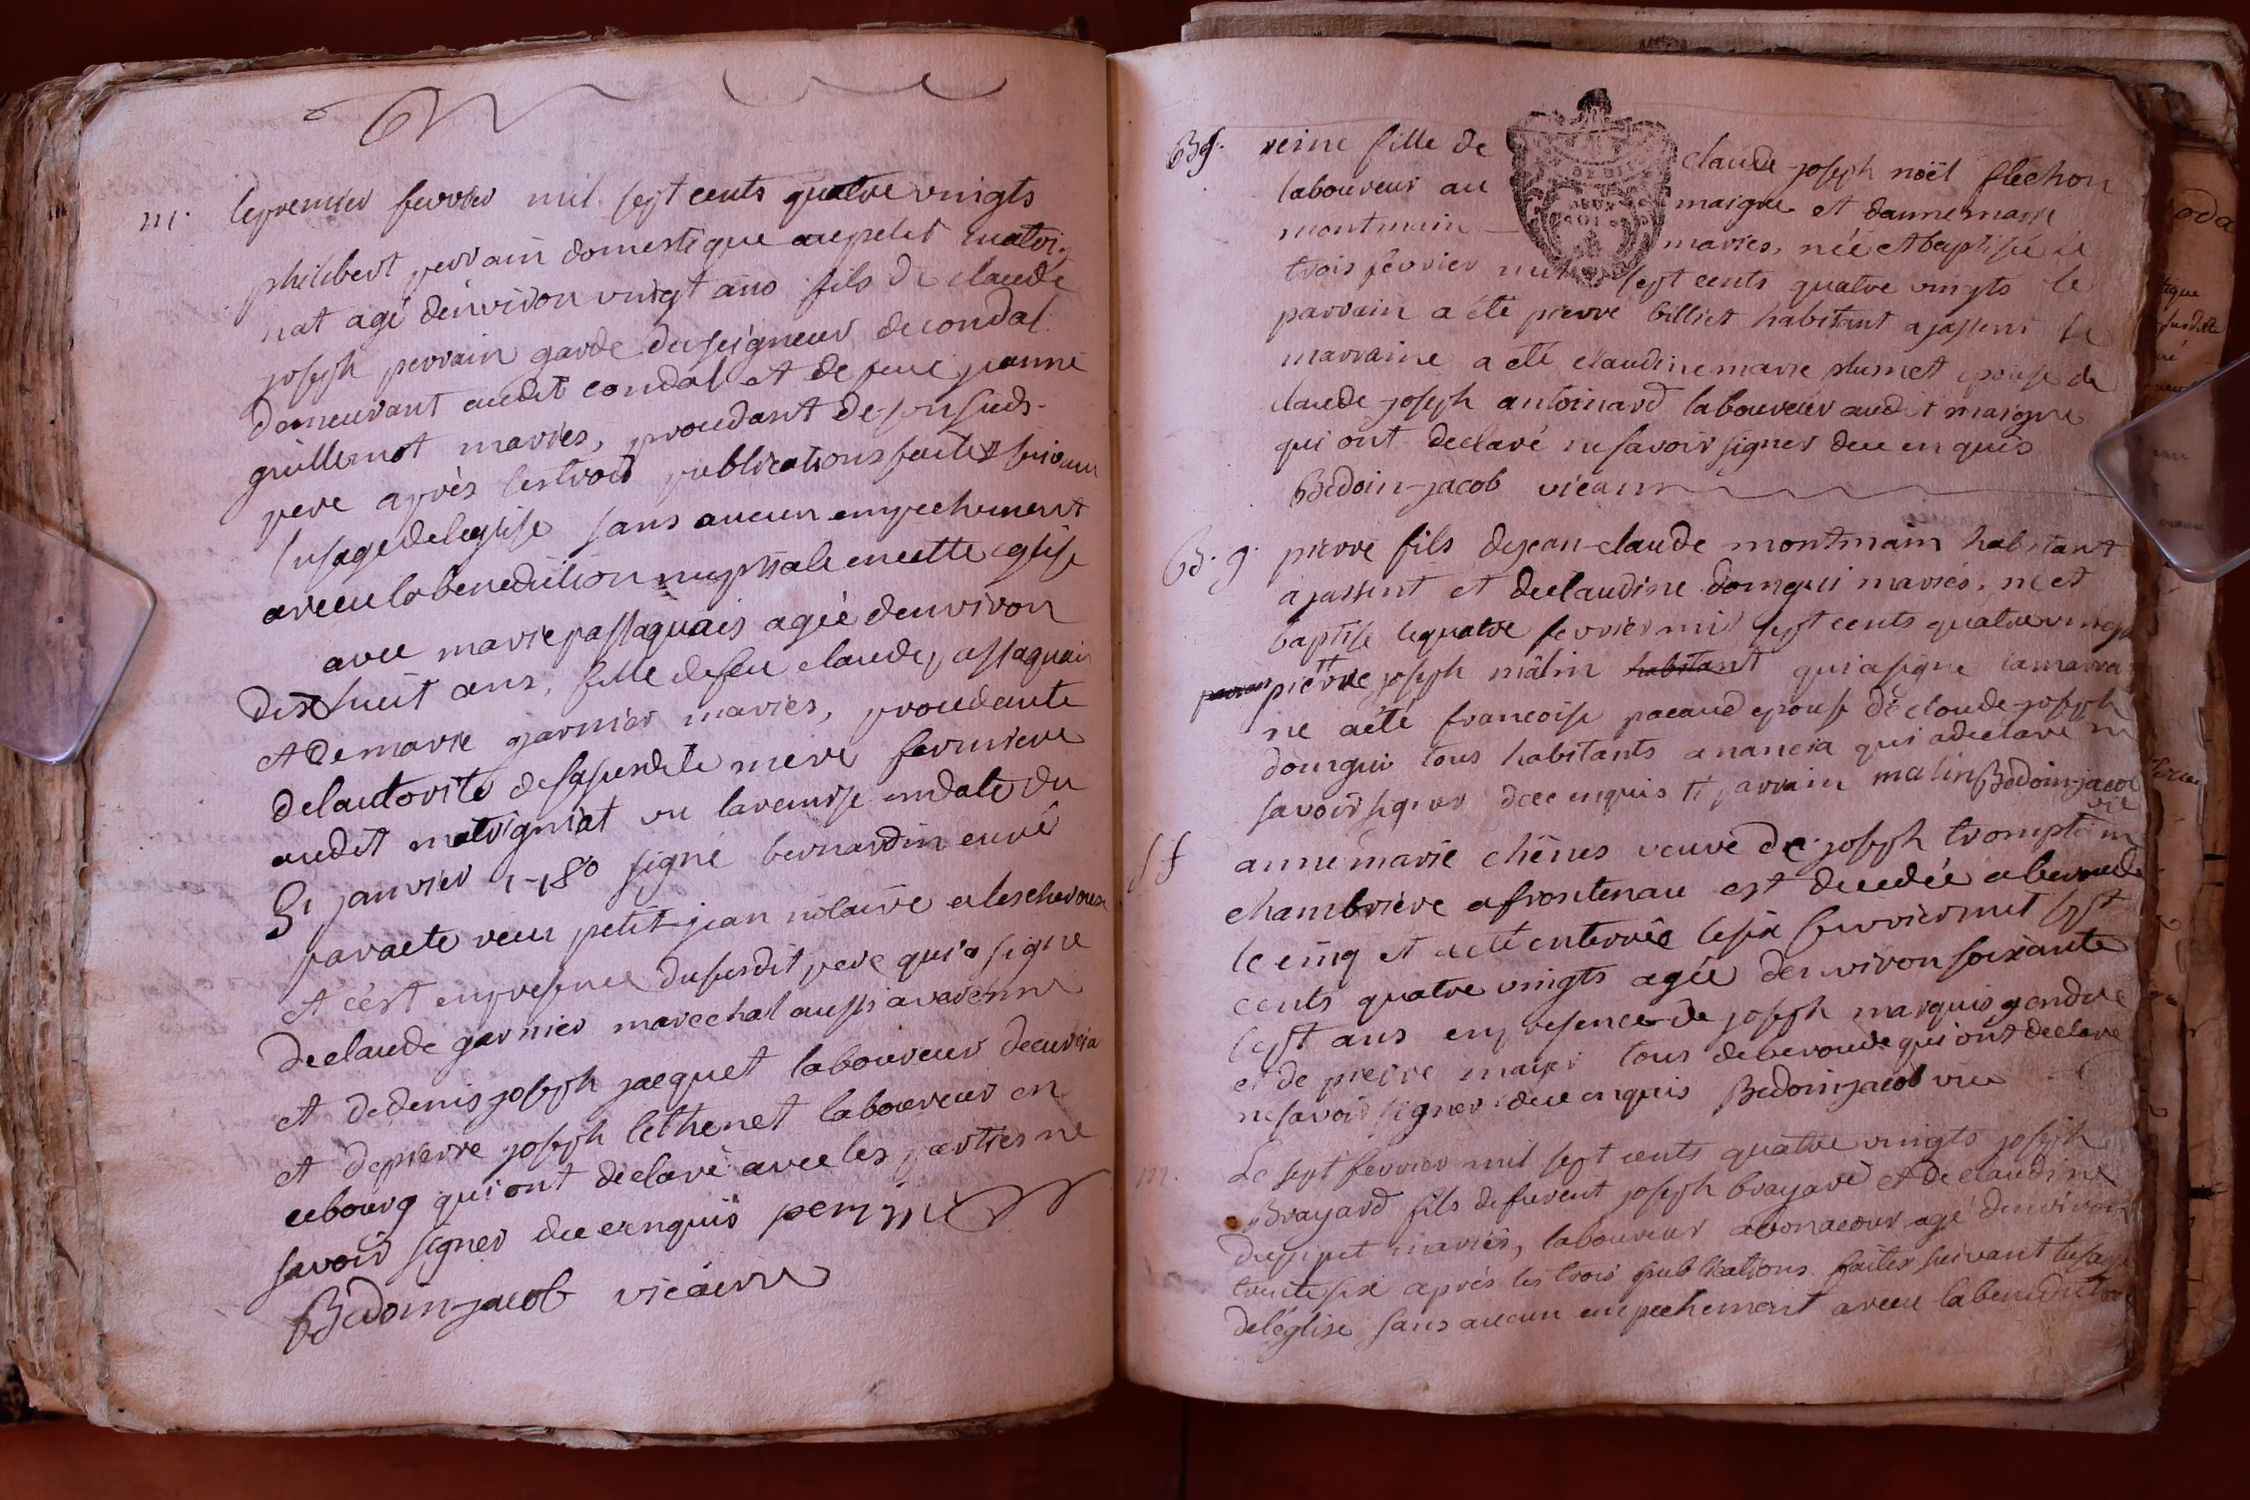 m. le premier fevrier mil sept cents quatre vingts
philibert perrain domestique au petit matvi-
nat agé denviron vingt ans fils de claude
joseph perrain garde du seigneur de condal
demeurant audit condal et de feue jeanne
guillemot mariés, procedant de son susd.
pere après les trois publications faites suivant
lusage de leglise sans aucun empechement
a receu la benediction nuptiale en cette eglise
avec marie passaquais agée denviron
dix huit ans, fille de feu claude passaquais
et de marie garnier mariés, procedante
de lautorité de sa susdite mere fermiere
audit matvigniat vu la remise en date du
31 janvier 1780 signé bernardin curé
par acte receu petitjean notaire
et cest en presence du susdit pere qui a signé
de claude garnier marechal aussi a varenne
et de denis joseph jacquet laboureur
et de pierre joseph lethenet laboureur en
ce bourg qui ont declaré avec les parties ne
savoir signer de ce enquis perrin
Bedoin-jacob vicaire
B g. reine fille de claude-joseph noël flechon
laboureur au maigre et danne marie
montmain mariés, née et baptisée le
trois février mil sept cents quatre vingts le
parrain a été pierre billiet habitant a jassent la
marraine a été claudine marie plumet epouse de
claude-joseph antoinard laboureur audit maigre
qui ont declaré ne savoir signer de ce enquis
Bedoin-jacob vicaire
B. g. pierre fils de jean-claude montmain habitant
a jassent et de claudine domgui mariés, né et
baptisé le quatre fevrier mil sept cents quatre vingts
pierre joseph mâlin habitant qui a signé la marrai
ne a été francoise pacaud epouse de claude-joseph
domgui tous habitants a nancia qui a declaré ne
savoir signer de ce enquis tt parrain malin Bedoin-jacob
vic
S f anne marie chênes veuve de joseph
chambriere a frontenau est decedée a beroude
le cinq et a été enterrée le six fevrier mil sept
cents quatre vingts agée denviron soixante
sept ans en presence de joseph marquis gendre
et de pierre mayer tous de beroude qui ont declaré
ne savoir signer de ce enquis Bedoin-jacob vic
m. Le sept fevrier mil sept cents quatre vingts joseph
Brayard fils de furent joseph brayard et de claudine
dupipet mariés, laboureur a bonacour agé denviron
trente six après les trois publications faites suivant lusage
de léglise sans aucun empechement a receu la benediction